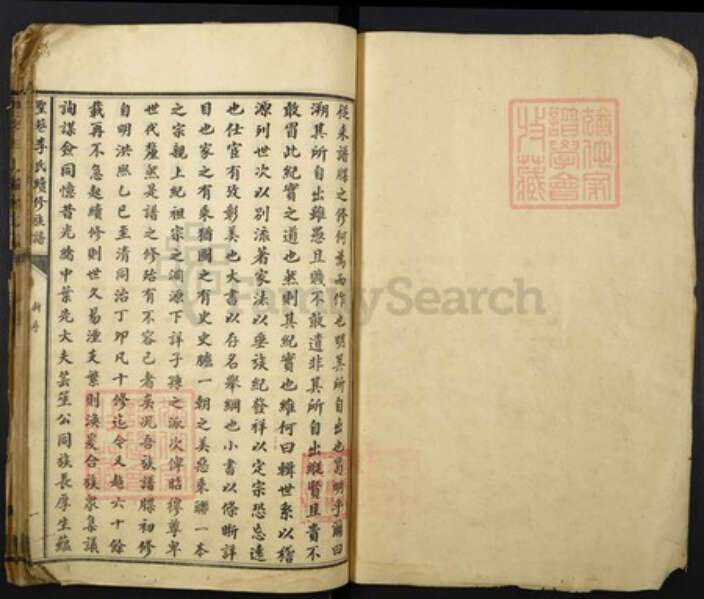 從來譜牒之修何為而作也明其所自出也曷明乎爾曰
溯其所自出雖愚且賤不敢遺非其所自出雖賢且貴不
敢冒此紀實之道也然則其紀實也維何曰輯世系以稽
源列世次以別派著家法以垂族紀發祥以定宗恐忘遠
也仕宦有攷彰美也大書以存名舉綱也小書以條晰詳
目也家之有乘猶國之有史史臚一朝之美惡乘聯一本
之宗親上紀祖宗之淵源下詳子孫之派次俾昭穆尊卑
世代釐然是譜之修殆有不容已者矣況吾族譜牒初修
自明洪熙乙巳至清同治丁卯凡十修迄今又越六十餘
載再不急起續修則世久易湮支繁則渙爰合族眾集議
詢謀僉同憶昔光緒中葉先大夫芸笙公同族長厚生蘊
李氏續修族譜
新序
FamilySearch